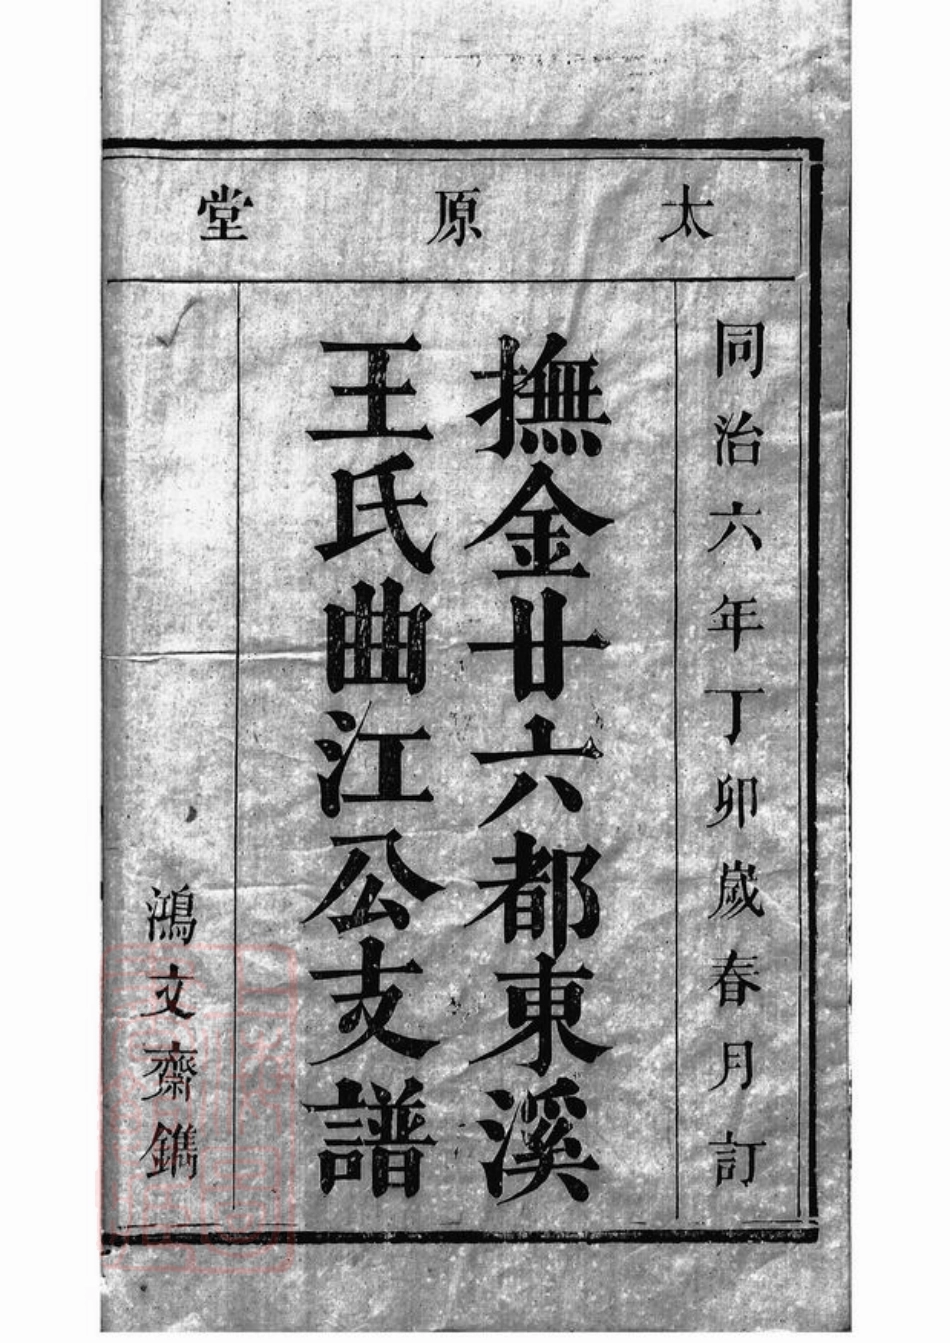 太原堂
同治六年丁卯歲春月訂
撫金廿六都東溪
王氏曲江公支譜
鴻文齋鐫